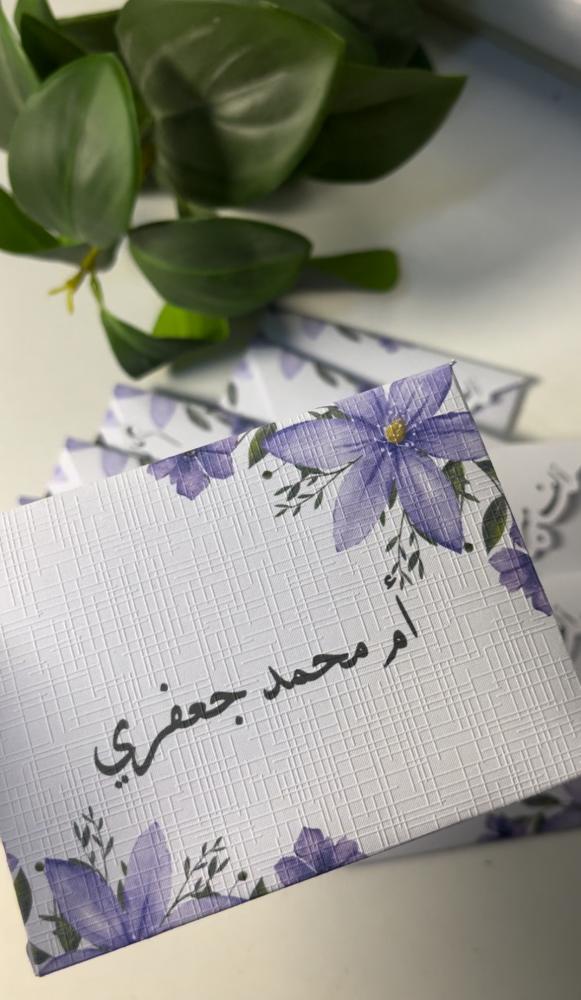 أم محمد جعفري